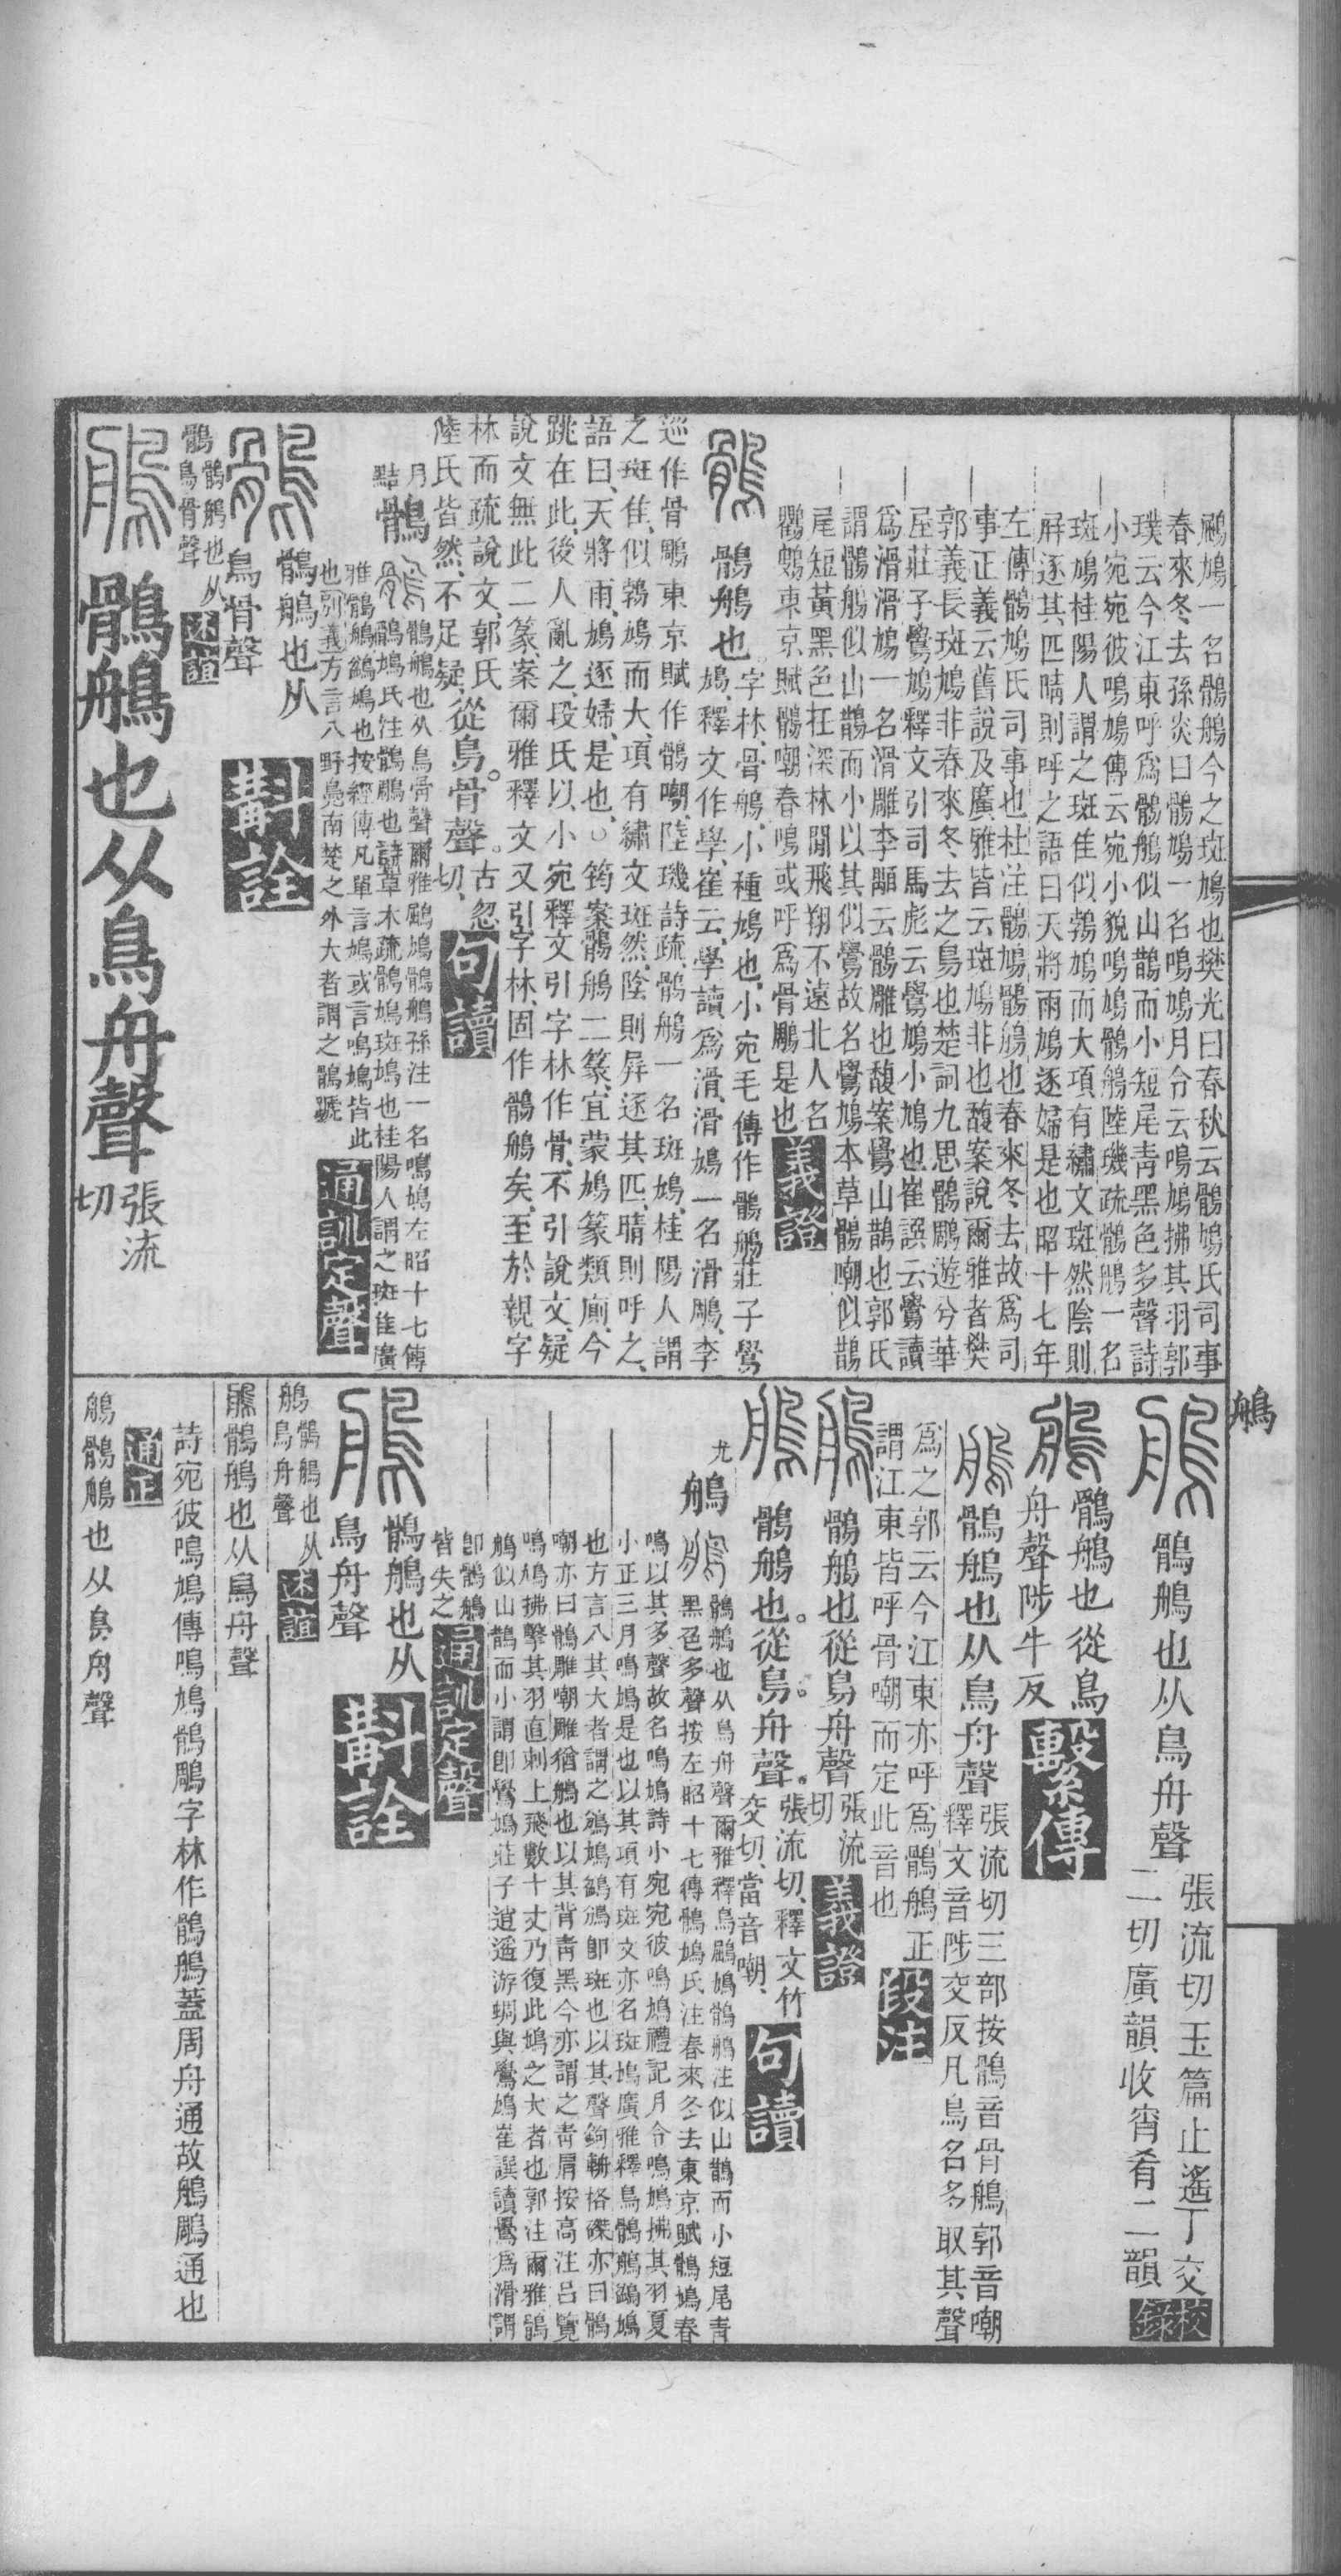 鶻鳩一名鶻鵃今之斑鳩也樊光曰春秋云鶻鳩氏司事
春來冬去孫炎曰鶻鳩一名鳴鳩月令云鳴鳩拂其羽郭
璞云今江東呼爲鶻鵃似山鵲而小短尾青黑色多聲詩
小宛宛彼鳴鳩傳云宛小貌鳴鳩鶻鵃陸璣疏鶻鵃一名
斑鳩桂陽人謂之斑隹似鶉鳩而大項有繡文斑然陰則
屛逐其匹晴則呼之語曰天將雨鳩逐婦是也昭十七年
左傳鶻鳩氏司事也杜注鶻鳩鶻鵃也春來冬去故爲司
事正義云舊說及廣雅皆云斑鳩非也馥案說爾雅者樊
郭義長斑鳩非春來冬去之鳥也楚詞九思鶻鵰遊兮華
屋莊子鷽鳩釋文引司馬彪云鷽鳩小鳩也崔譔云鷽讀
爲滑滑鳩一名滑雕李頤云鶻雕也馥案鷽山鵲也郭氏
謂鶻鵃似山鵲而小以其似鷽故名鷽鳩本草鶻嘲似鵲
尾短黃黑色在深林閒飛翔不遠北人名
鸜鵒東京賦鶻嘲春鳴或呼爲骨鵰是也 義證
鶻鵃也。字林、骨鵃、小種鳩也、小宛毛傳作鶻鵃莊子鷽
鳩、釋文作學、崔云、學讀爲滑、滑鳩一名滑鵰、李
巡作骨鵰東京賦作鶻嘲、陸璣詩疏、鶻鵃一名斑鳩、桂陽人謂
之斑隹、似鶉鳩而大、項有繡文斑然、陰則屛逐其匹、晴則呼之、
語曰、天將雨、鳩逐婦、是也、○筠案鶻鵃二篆、宜蒙鳩篆類廁、今
跳在此、後人亂之、段氏以小宛釋文引字林作骨、不引說文、疑
說文無此二篆、案爾雅釋文又引字林、固作鶻鵃矣、至於親字
林而疏說文、郭氏
陸氏皆然、不足疑、從鳥。骨聲。古忽切、 句讀
月 鶻 鶻鵃也从鳥骨聲爾雅鶌鳩鶻鵃孫注一名鳴鳩左昭十七傳
鶻鳩氏注鶻鵰也詩草木疏鶻鳩斑鳩也桂陽人謂之斑隹廣
雅鶻鵃鷦鳩也按經傳凡單言鳩或言鳴鳩皆此
也別義方言八野鳧南楚之外大者謂之鶻蹏 通訓定聲
鶻鵃也从
鳥骨聲 斠詮
鶻鶻鵃也从
鳥骨聲 述誼
鶻鵃也从鳥舟聲 張流
切
鵃
鶻鵃也从鳥舟聲 張流切玉篇止遙丁交
二切廣韻收宵肴二韻 校錄
鶻鵃也從鳥
舟聲陟牛反 繫傳
鶻鵃也从鳥舟聲 張流切三部按鶻音骨鵃郭音嘲
釋文音陟交反凡鳥名多取其聲
爲之郭云今江東亦呼爲鶻鵃正
謂江東皆呼骨嘲而定此音也 段注
鶻鵃也從鳥舟聲 張流
切 義證
鶻鵃也。從鳥。舟聲。張流切、釋文竹
交切、當音嘲、 句讀
尤 鵃 鶻鵃也从鳥舟聲爾雅釋鳥鶌鳩鶻鵃注似山鵲而小短尾青
黑色多聲按左昭十七傳鶻鳩氏注春來冬去東京賦鶻鳩春
鳴以其多聲故名鳴鳩詩小宛宛彼鳴鳩禮記月令鳴鳩拂其羽夏
小正三月鳴鳩是也以其項有斑文亦名斑鳩廣雅釋鳥鶻鵃鷦鳩
也方言八其大者謂之鳻鳩鷦鳻卽斑也以其聲鉤輈格磔亦曰鶻
嘲亦曰鶻雕嘲雕猶鵃也以其背青黑今亦謂之青肩按高注呂覽
鳴鳩拂擊其羽直刺上飛數十丈乃復此鳩之大者也郭注爾雅鶻
鵃似山鵲而小謂卽鷽鳩莊子逍遙游蜩與鷽鳩崔譔讀鷽爲滑謂
卽鶻鵃
皆失之 通訓定聲
鶻鵃也从
鳥舟聲 斠詮
鵃鶻鵃也从
鳥舟聲 述誼
鶻鵃也从鳥舟聲
詩宛彼鳴鳩傳鳴鳩鶻鵰字林作鶻鵃蓋周舟通故鵃鵰通也
通正
鵃鶻鵃也从鳥舟聲